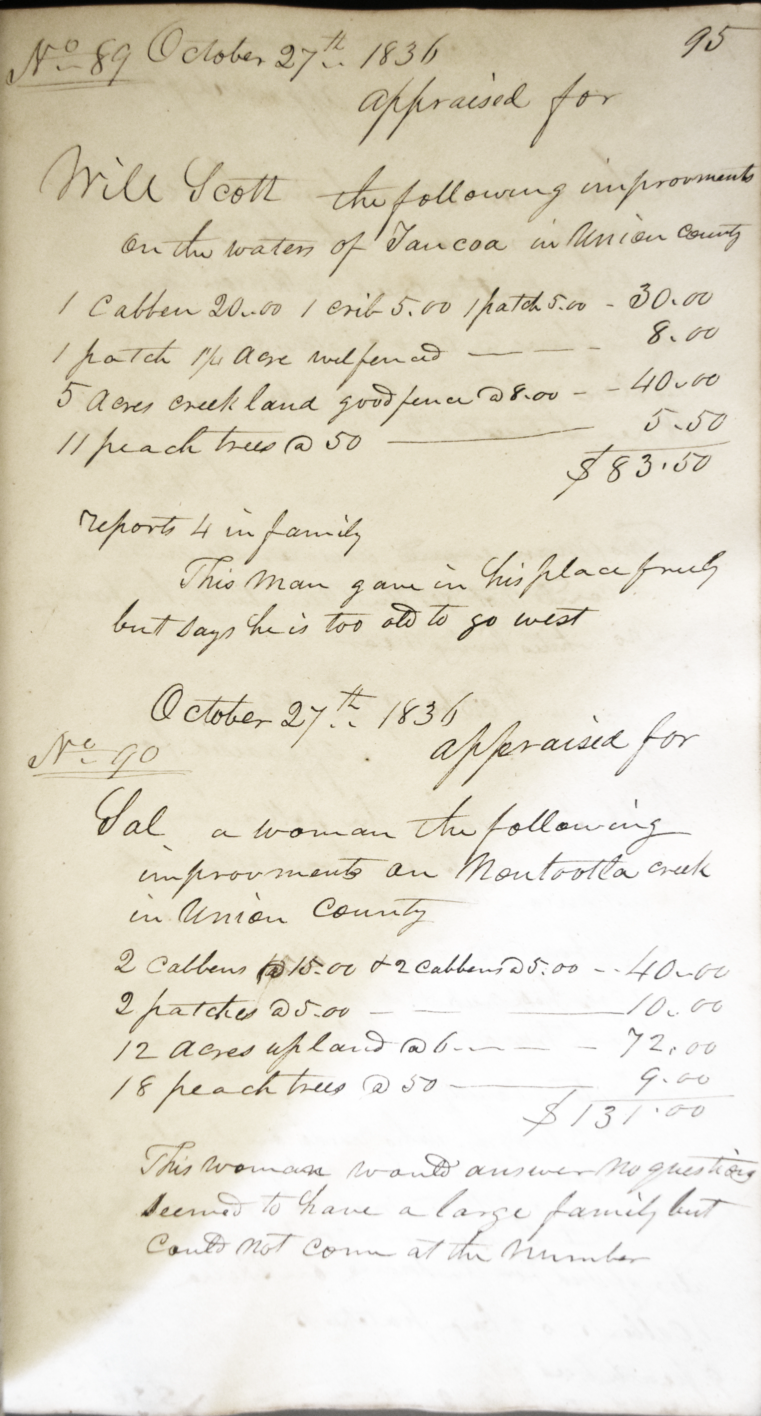 95
No 89 October 27th 1836
appraised for
Will Scott the following improvments
on the waters of Taucoa in Union county
1 Cabben 20.00 1 crib 5.00 1 patch 5.00 - 30.00
1 patch 1 1/4 Acre welfenced — — - 8.00
5 Acres creek land good fence @ 8.00 - - 40.00
11 peach trees @ 50 — 5.50
$83.50
reports 4 in family
This man gave in his place freely
but says he is too old to go west
October 27th 1836
No 90
appraised for
Sal a woman the following
improvments on Nontootla creek
in Union County
2 cabbens @ 15.00 & 2 cabbens @ 5.00 - - 40.00
2 patches @ 5.00 — — — 10.00
12 acres upland @ 6 - — — - 72.00
18 peach trees @ 50 — 9.00
$131.00
This woman would answer no questions
seemed to have a large family but
could not come at the number